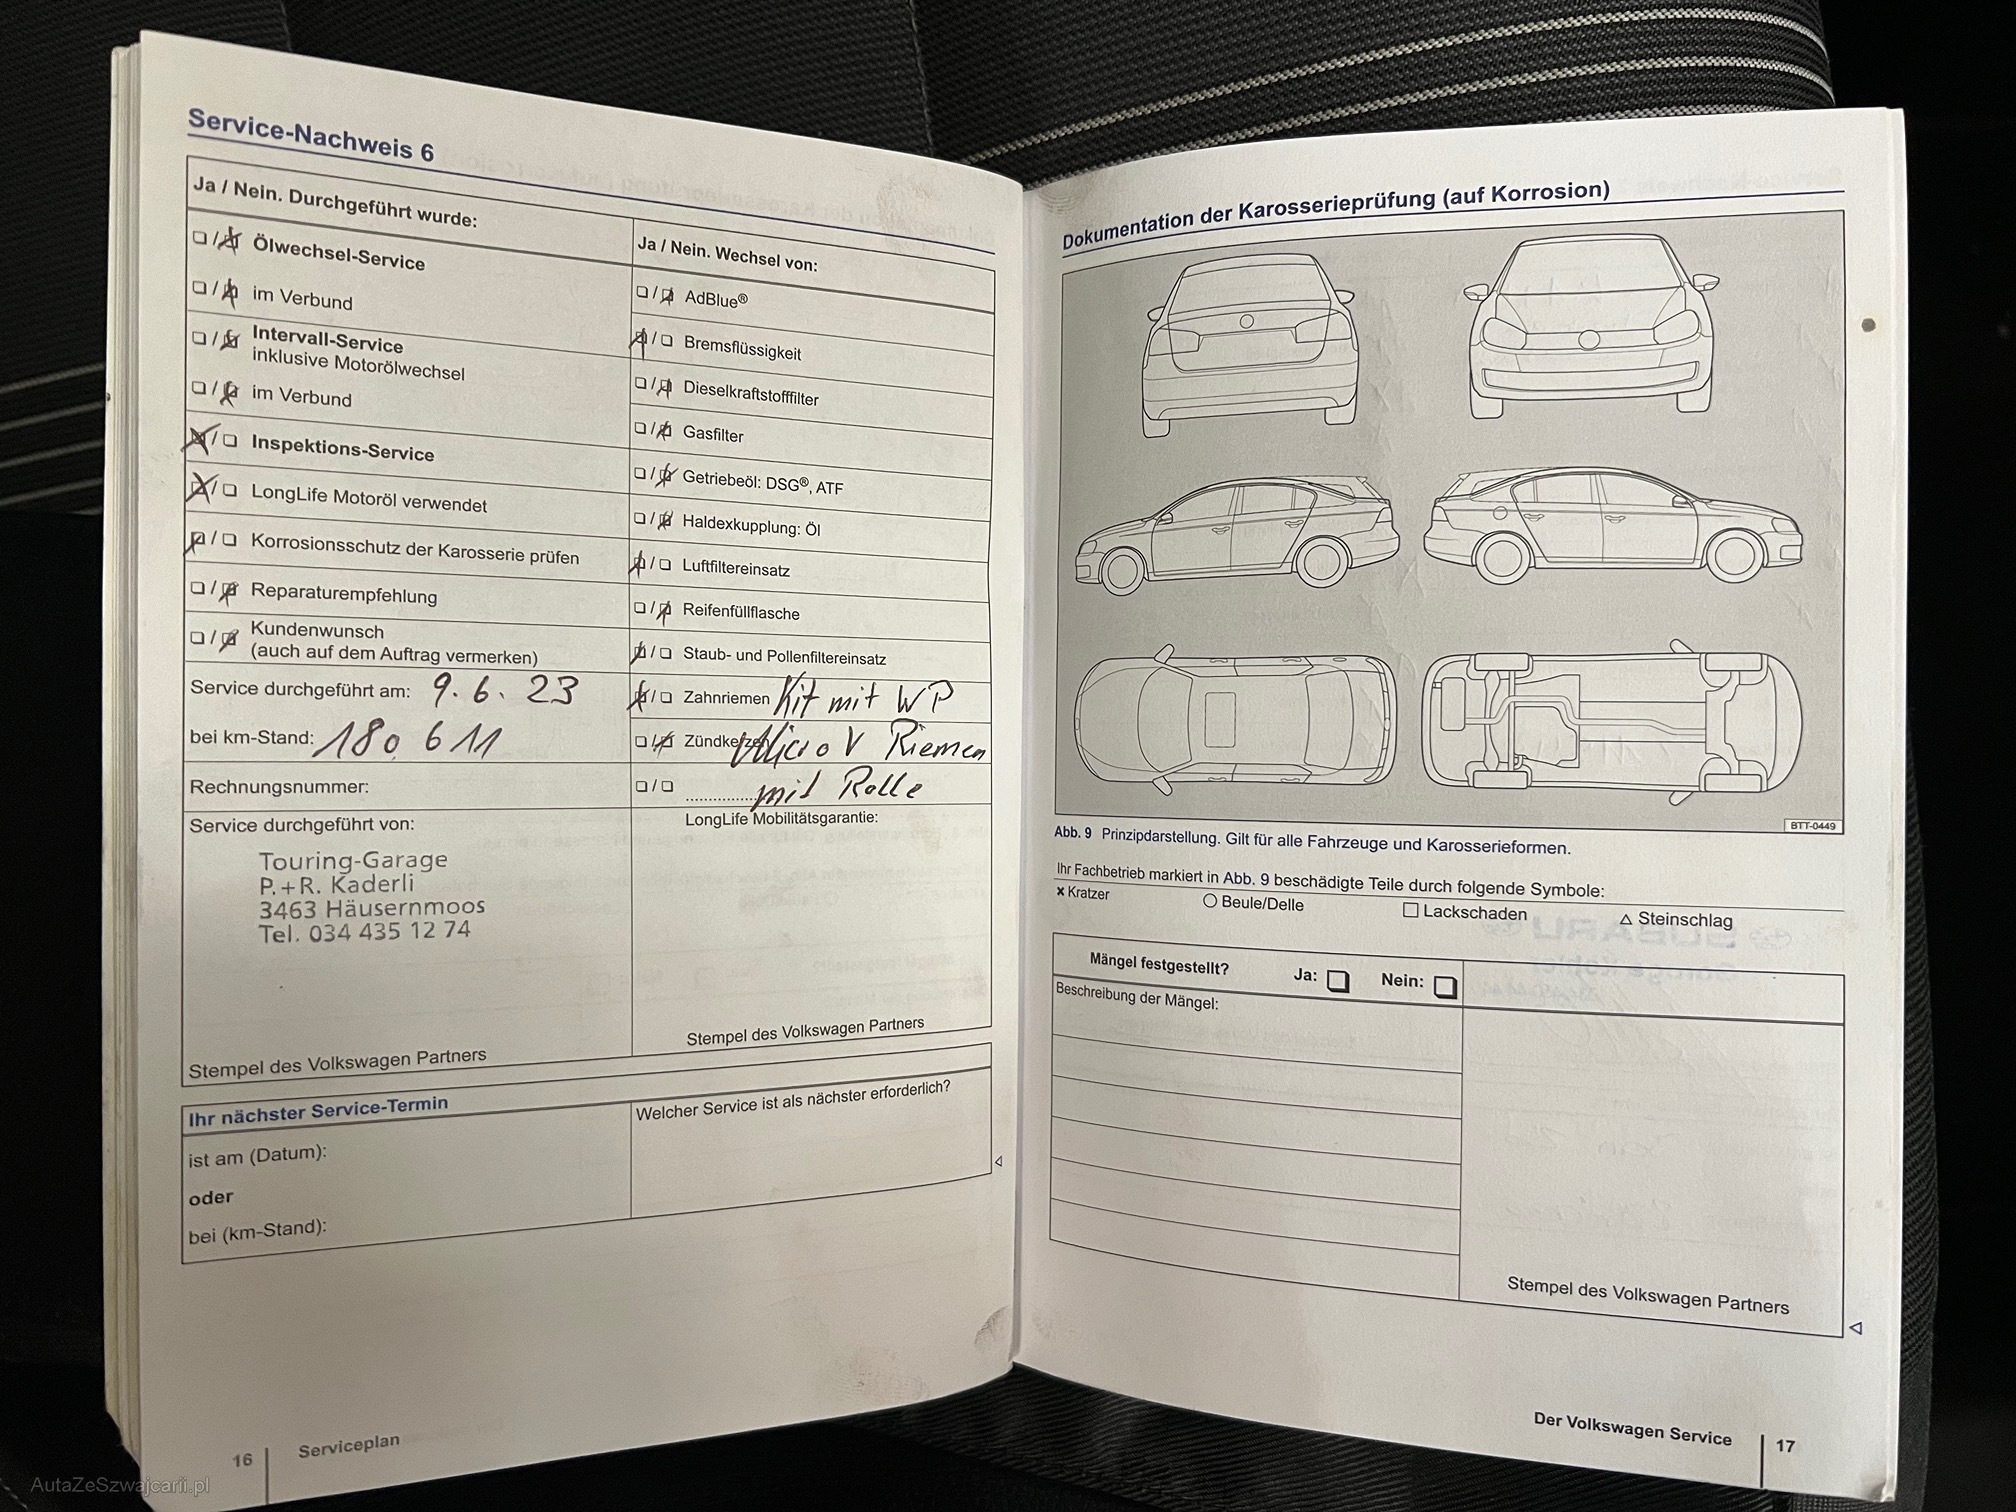 Service-Nachweis 6
Ja / Nein. Durchgeführt wurde:
❏ / ❏ Ölwechsel-Service
❏ / ❏ im Verbund
❏ / ❏ Intervall-Service
inklusive Motorölwechsel
❏ / ❏ im Verbund
❏ / ❏ Inspektions-Service
❏ / ❏ LongLife Motoröl verwendet
❏ / ❏ Korrosionsschutz der Karosserie prüfen
❏ / ❏ Reparaturempfehlung
❏ / ❏ Kundenwunsch
(auch auf dem Auftrag vermerken)
Service durchgeführt am: 9. 6. 23
bei km-Stand: 180 611
Rechnungsnummer:
Service durchgeführt von:
Touring-Garage
P.+R. Kaderli
3463 Häusernmoos
Tel. 034 435 12 74
Stempel des Volkswagen Partners
Ja / Nein. Wechsel von:
❏ / ❏ AdBlue®
❏ / ❏ Bremsflüssigkeit
❏ / ❏ Dieselkraftstofffilter
❏ / ❏ Gasfilter
❏ / ❏ Getriebeöl: DSG®, ATF
❏ / ❏ Haldexkupplung: Öl
❏ / ❏ Luftfiltereinsatz
❏ / ❏ Reifenfüllflasche
❏ / ❏ Staub- und Pollenfiltereinsatz
❏ / ❏ Zahnriemen Kit mit WP
❏ / ❏ Zündkerzen Micro V Riemen
❏ / ❏ ............... mit Rolle
LongLife Mobilitätsgarantie:
Stempel des Volkswagen Partners
Ihr nächster Service-Termin
ist am (Datum):
oder
bei (km-Stand):
Welcher Service ist als nächster erforderlich?
16 Serviceplan
AutaZeSzwajcarii.pl
Dokumentation der Karosserieprüfung (auf Korrosion)
BTT-0449
Abb. 9 Prinzipdarstellung. Gilt für alle Fahrzeuge und Karosserieformen.
Ihr Fachbetrieb markiert in Abb. 9 beschädigte Teile durch folgende Symbole:
× Kratzer ○ Beule/Delle □ Lackschaden △ Steinschlag
Mängel festgestellt? Ja: ❏ Nein: ❏
Beschreibung der Mängel:
Stempel des Volkswagen Partners
Der Volkswagen Service 17